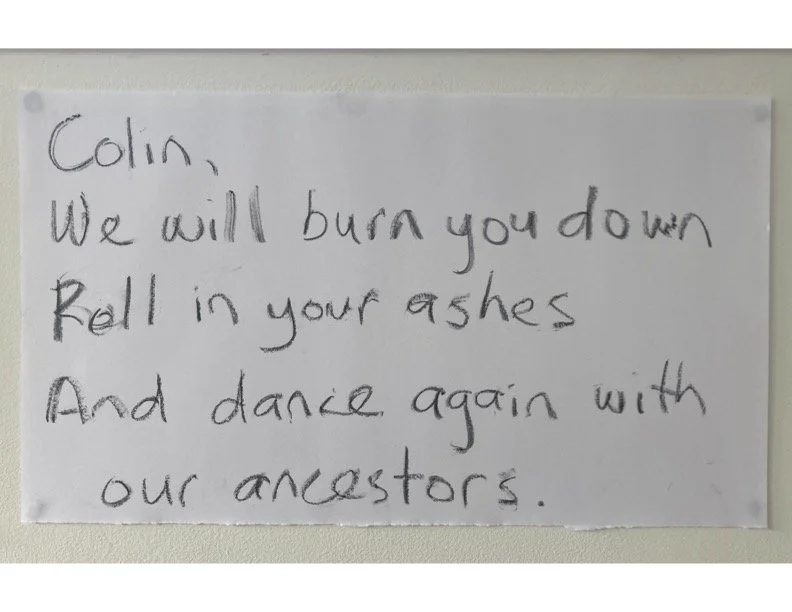 Colin,
We will burn you down
Roll in your ashes
And dance again with
our ancestors.